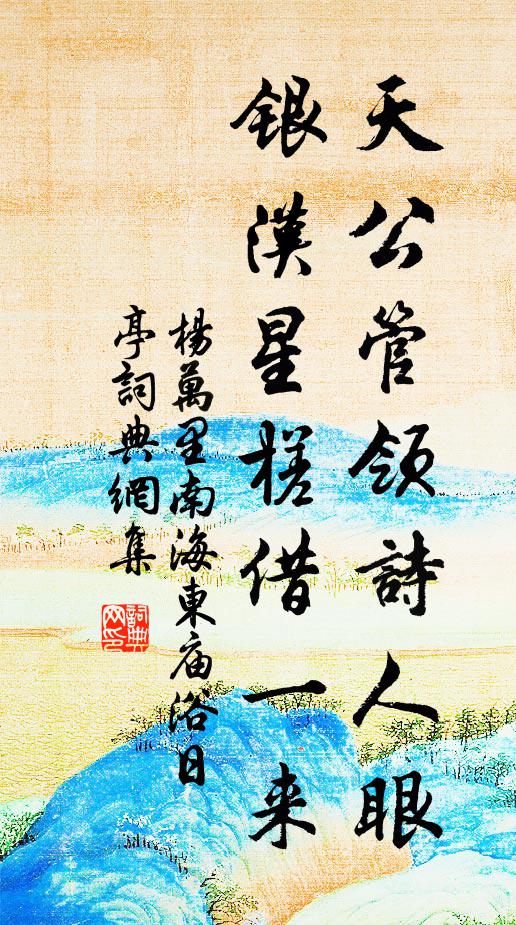 天公管领詩人眼
銀漢星槎借一来
楊萬里南海東庙浴日
亭詞典網集
詞典
网印